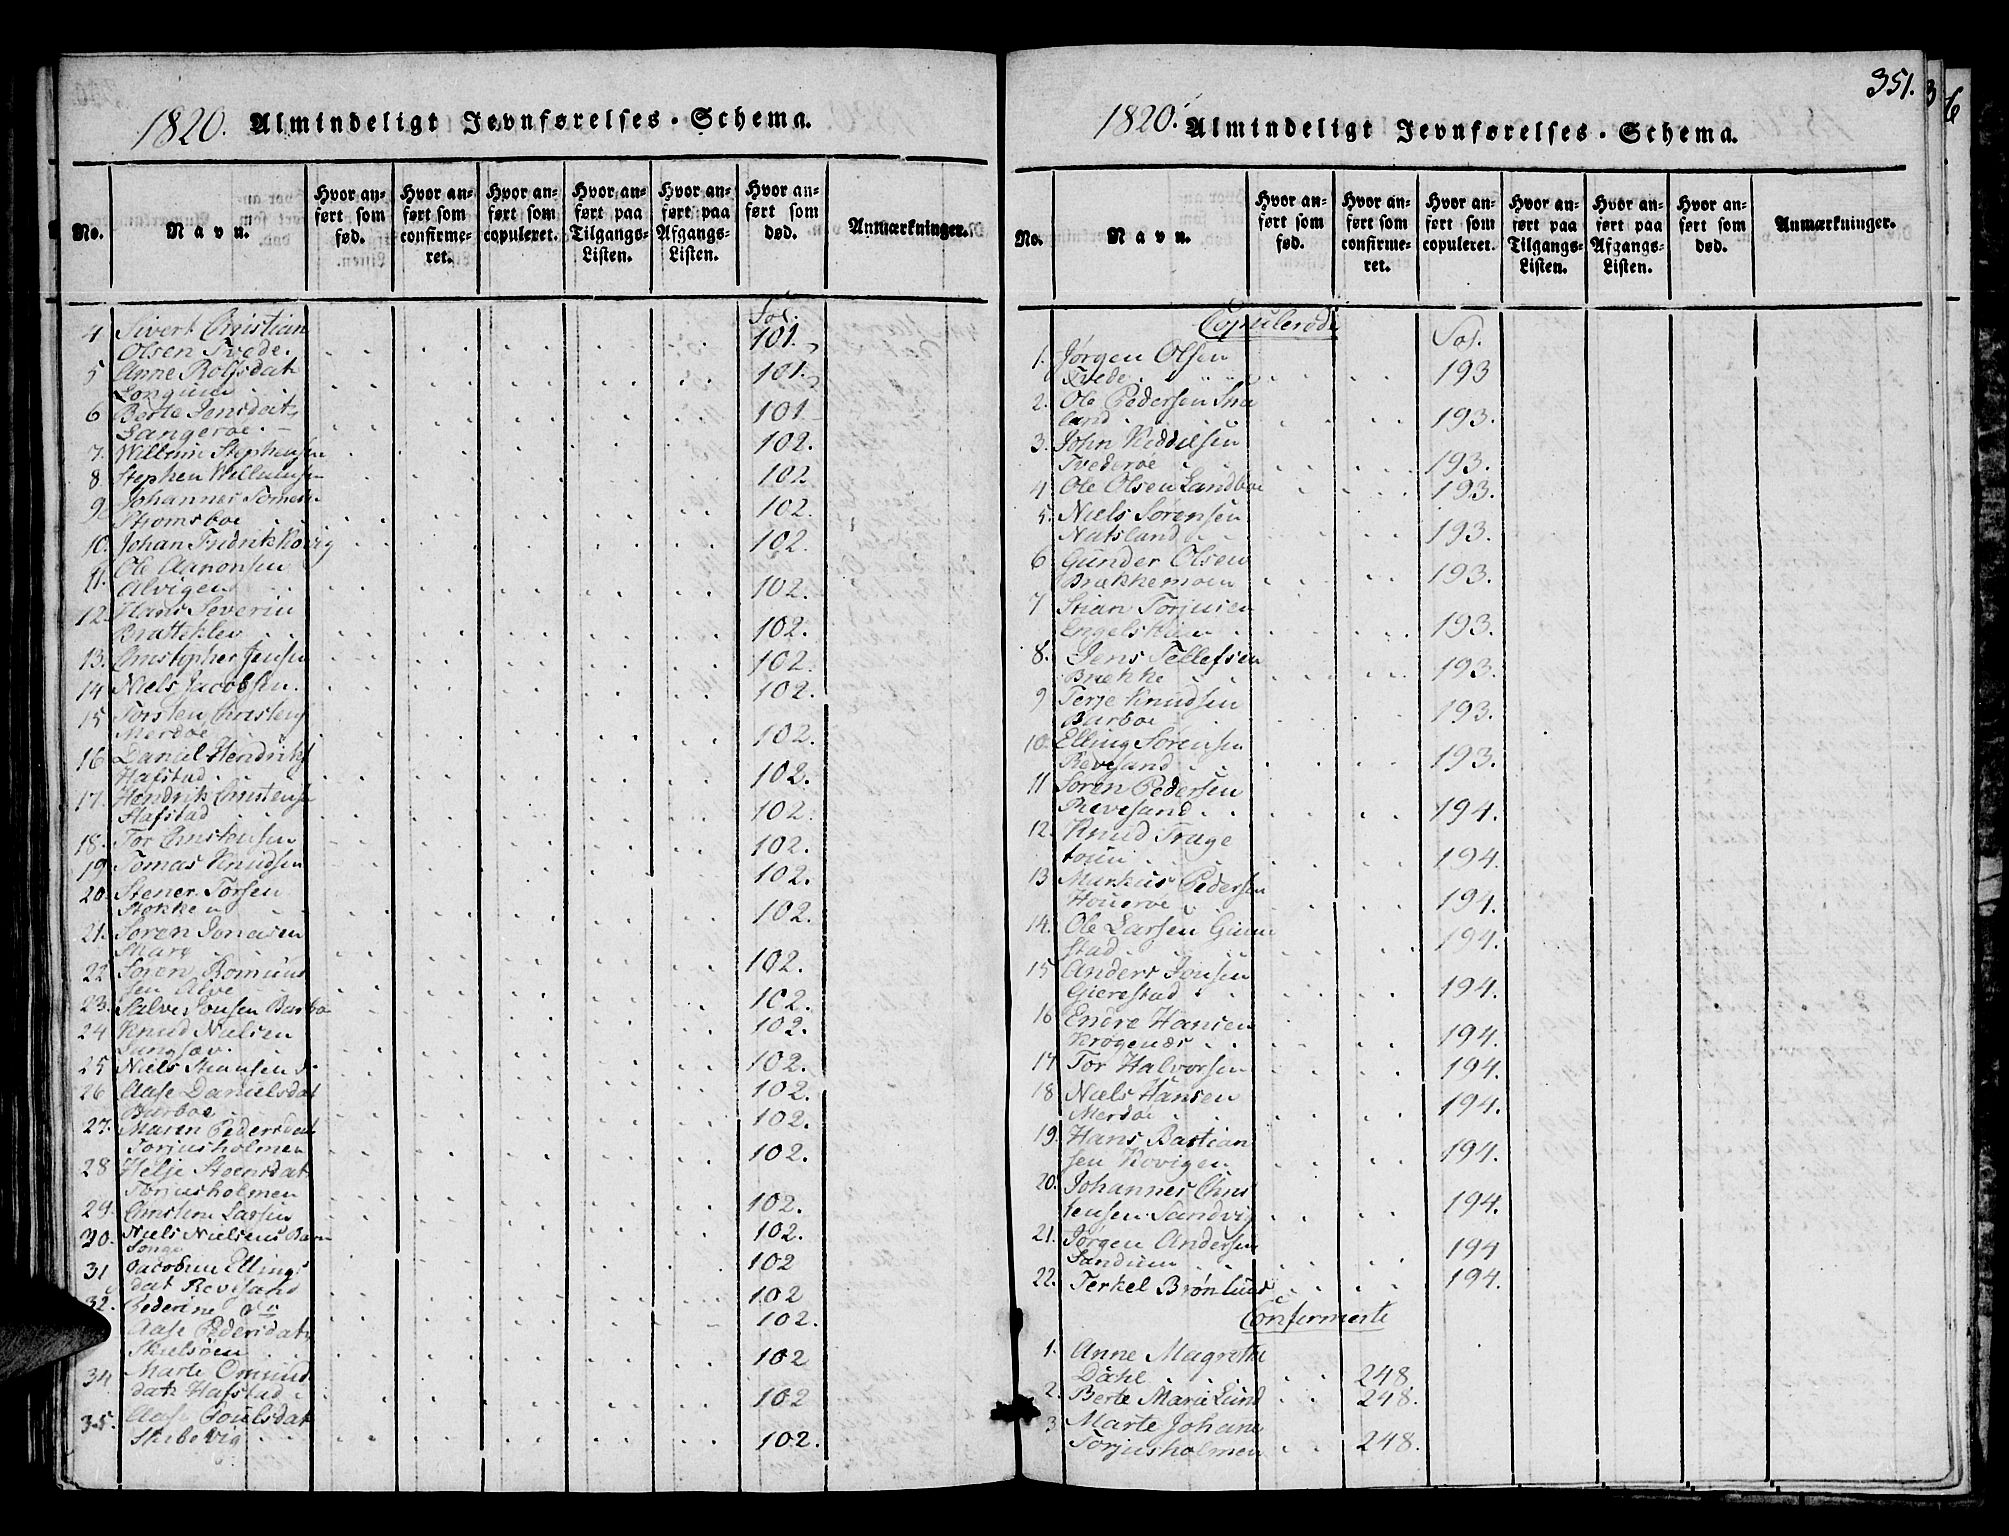 1820. Almindeligt Jevnførelses-Schema.
No.
Navn.
Hvor anført som fød.
Hvor anført som confirmeret.
Hvor anført som copuleret.
Hvor anført paa Tilgangs-Listen.
Hvor anført paa Afgangs-Listen.
Hvor anført som død.
Anmærkninger.
Fol.
4 Sivert Christian
Olsen Tvede. 101.
5 Anne Rolfsdat
Longum 101.
6 Berte Jensdat
Langeroe. 101
7. Willum Stephensen 102.
8 Stephen Willumsen 102
9. Johannes
Strømsboe 102.
10. Johan Fridrik Kovig 102.
11. Ole Aanonsen
Alvigen 102.
12. Hans Severin
Bratteklev 102.
13. Christopher Jensen 102.
14 Niels Jacobsen. 102.
15 Torsten Christens
Merdøe 102.
16 Daniel Hendriks
Hafstad 102.
17. Hendrik Christens
Hafstad 102.
18. Tor Christensen 102.
19 Tomas Knudsen 102.
20. Stener Torsen
Stokken 102.
21. Søren Jonasen
102.
22 Søren Romund
sen Alve 102.
23. Salve Jonsen Barbo 102.
24 Knud Nielsen
Langsæv. 102.
25 Niels 102.
26 Aase Danielsdat
Barboe 102.
27. Maren Pedersdat
Torjusholmen 102.
28 Helje Steensdat
Torjusholmen 102.
29. Christen Larsen 102.
30. Niels Nielsens Barn
Songe 102
31 Jacobine Ellings
dat Revesand 102
32. Pederine do 102.
Aase Pedersdat
Skielsøen 102
34 Marte Omund
dat Hafstad 102
35. Aase Poulsdat
Skibevig 102.
351.
1820. Almindeligt Jevnførelses-Schema.
No.
Navn.
Hvor anført som fød.
Hvor anført som confirmeret.
Hvor anført som copuleret.
Hvor anført paa Tilgangs-Listen.
Hvor anført paa Afgangs-Listen.
Hvor anført som død.
Anmærkninger.
Copulerede
Fol.
1. Jørgen Olsen
Tvede 193
2. Ole Pedersen
land 193.
3. John Kiddelsen
Tvederøe 193.
4 Ole Olsen Landboe 193.
5. Niels Sørensen
Natsland 193.
6 Gunder Olsen
Brækkemoen 193.
7 Stian Torjusen
Engelskien 193.
8. Jens Tellefsen
Brække 193.
9 Terje Knudsen
Barboe 193.
10. Elling Sørensen
Revesand 193.
11 Søren Pedersen
Revesand 194.
12. Knud Trage
toun 194.
13 Markus Pedersen
Houerøe 194.
14. Ole Larsen Gunn
stad 194.
15 Anders Jonsen
Gierestad 194.
16 Endre Hansen
Krøgenæs 194.
17 Tor Halvorsen 194.
18 Niels Hansen
Merdøe 194.
19. Hans Bastian
sen Kovigen 194.
20. Johannes Chris
tensen Sandvig 194.
21. Jørgen Andersen
Sandum 194
22. Terkel Brønlund 194.
Confirmerte
1. Anne Magrethe
Dahl 248
2. Berte Marie Lund 248.
3 Marte Johane
Torjusholmen 248.